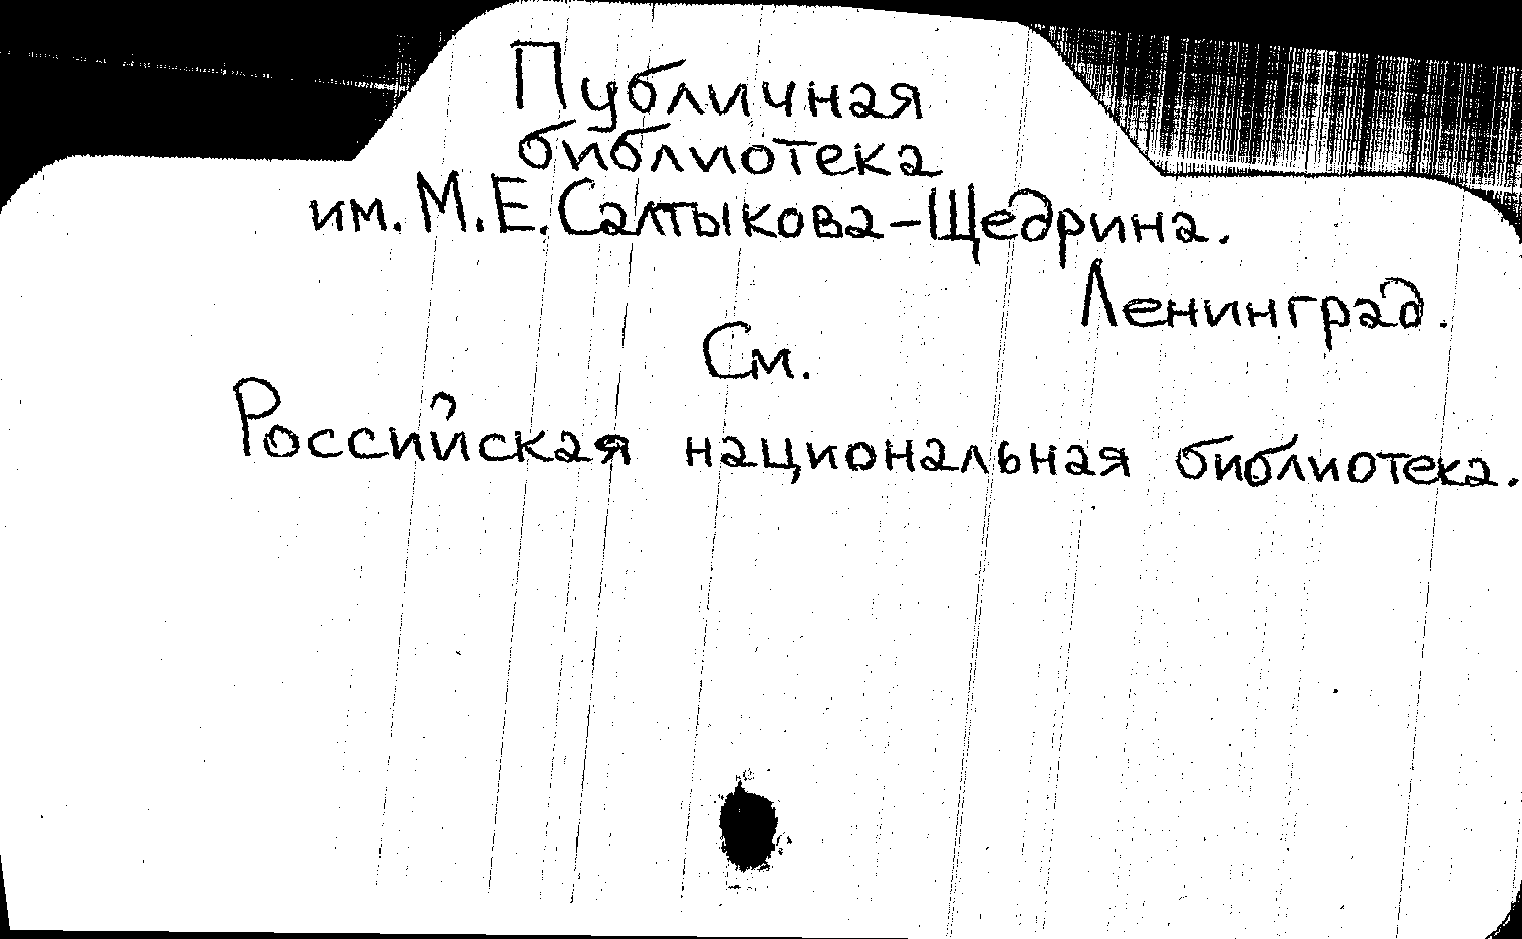 Публичная
библиотека
им. М.Е.Салтыкова-Щедрина.
Ленинград.
См.
Российская национальная библиотека.